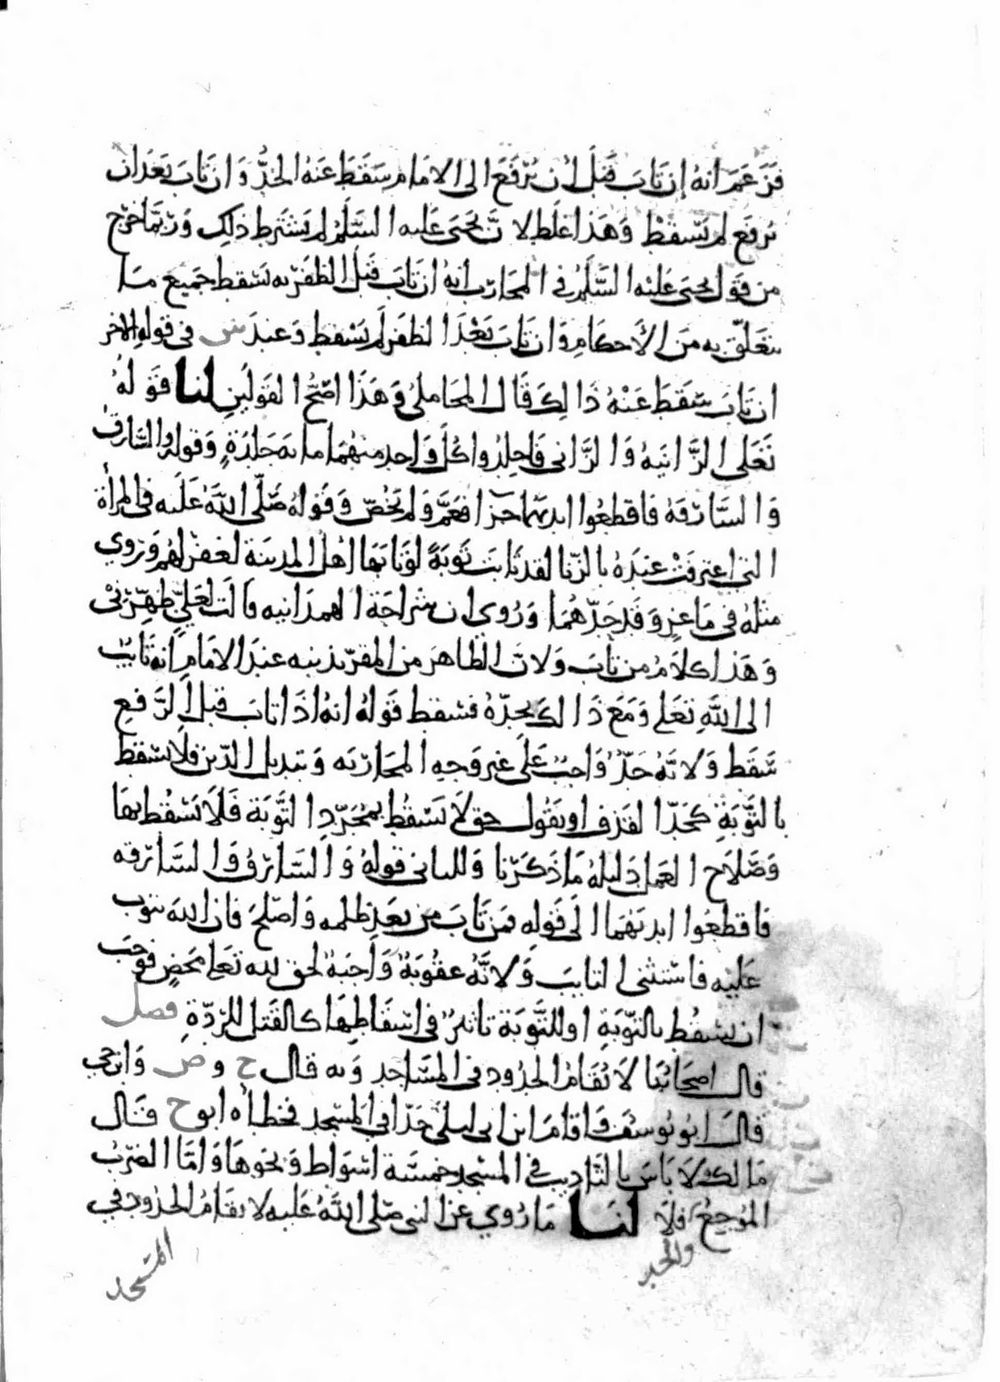 فزعم انه إن تاب قبل أن يرفع الى الامام سقط عنه الحد وان تاب بعد ان
يرفع لم يسقط وهذا غلط لان يحيى عليه السلم لم يشترط ذلك وربما خرج
من قول يحيى عليه السلم في المحارب انه ان تاب قبل الظفر به سقط جميع ما
يتعلق به من الأحكام وان تاب بعد الظفر لم يسقط وعند ش في قوله الاخر
ان تاب سقط عنه ذلك قال المحاملي وهذا اصح القولين لنا قوله
تعلى الزانيه والزاني فاجلدوا كل واحد منهما مائه جلدة وقوله والسارق
والسارقه فاقطعوا ايديهما جزا فعم ولم يخص وقوله صلى الله عليه في المرأة
التي اعترفت عنده بالزنا لقد تابت توبة لو تابها اهل المدينة لغفر لهم وروي
مثله في ماعز وقد حدهما وروى ان شراحة الهمدانيه قالت لعلي طهرني
وهذا كلام من تاب ولان الظاهر من المقر بذنبه عند الامام انه تايب
الى الله تعلى ومع ذلك يحده فسقط قوله انه اذا تاب قبل الرفع
سقط ولانه حد واجب على غير وجه المحاربه وتبديل الدين فلا يسقط
بالتوبة كحد القذف او يقول حق لا يسقط بمجرد التوبة فلا تسقط بها
وصلاح العمل دليله ما ذكرنا وللثاني قوله والسارق والسارقه
فاقطعوا ايديهما الى قوله فمن تاب من بعد ظلمه واصلح فان الله يتوب
عليه فاستثنى التايب ولانه عقوبة واجبة لحق لله تعلى محض فوجب
ان يسقط بالتوبة او للتوبة تاثير في اسقاطها كالقتل للردة فصل
قال اصحابنا لا تقام الحدود في المساجد وبه قال ح و ص وابن حي
قال ابو يوسف اقام ابن ابي ليلى حدا في المسجد فخطأه ابو ح وقال
مالك لا باس بالتاديب في المسجد خمسة اسواط ونحوها واما الضرب
الموجع والحد فلا لنا ما روي عن النبي صلى الله عليه لا يقام الحدود في
المسجد